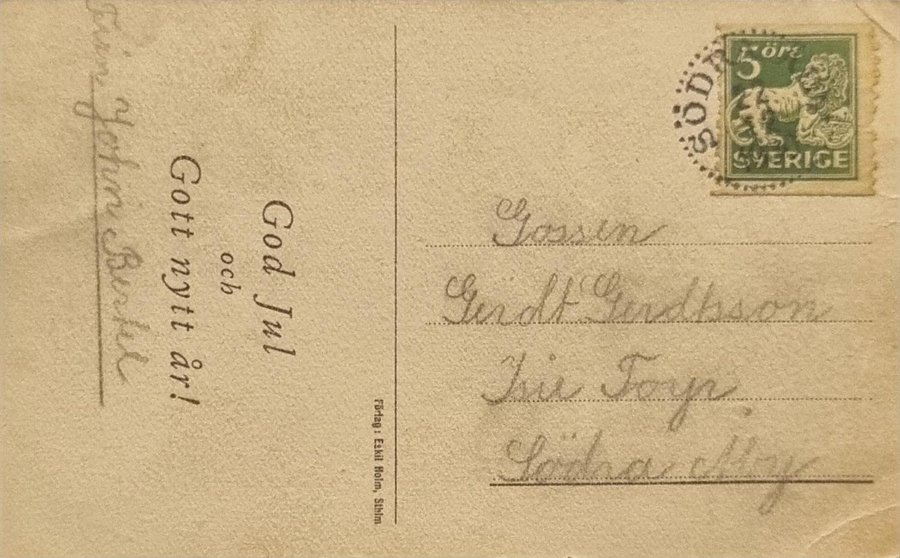 God Jul
och
Gott nytt år!
Från John Bertil
Förlag: Eskil Holm, Sthlm
SÖDR
5 öre
SVERIGE
Gossen
Gerdt Gerdtsson
Torp
Södra My